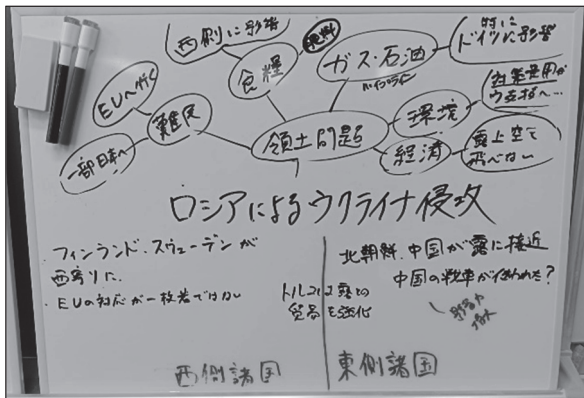 西側に影響
肥料
食糧
ガス・石油
パイプライン
特に
ドイツに影響
EUへ行く
難民
一部日本へ
領土問題
環境
対策費用が
ウ支援へ…
経済
露上空で
飛べない
ロシアによるウクライナ侵攻
フィンランド、スウェーデンが
西寄りに.
・EUの対応が一枚岩ではない
トルコは露との
貿易を強化
北朝鮮、中国が露に接近
中国の戦車が使われた?
影響力
西側諸国
東側諸国